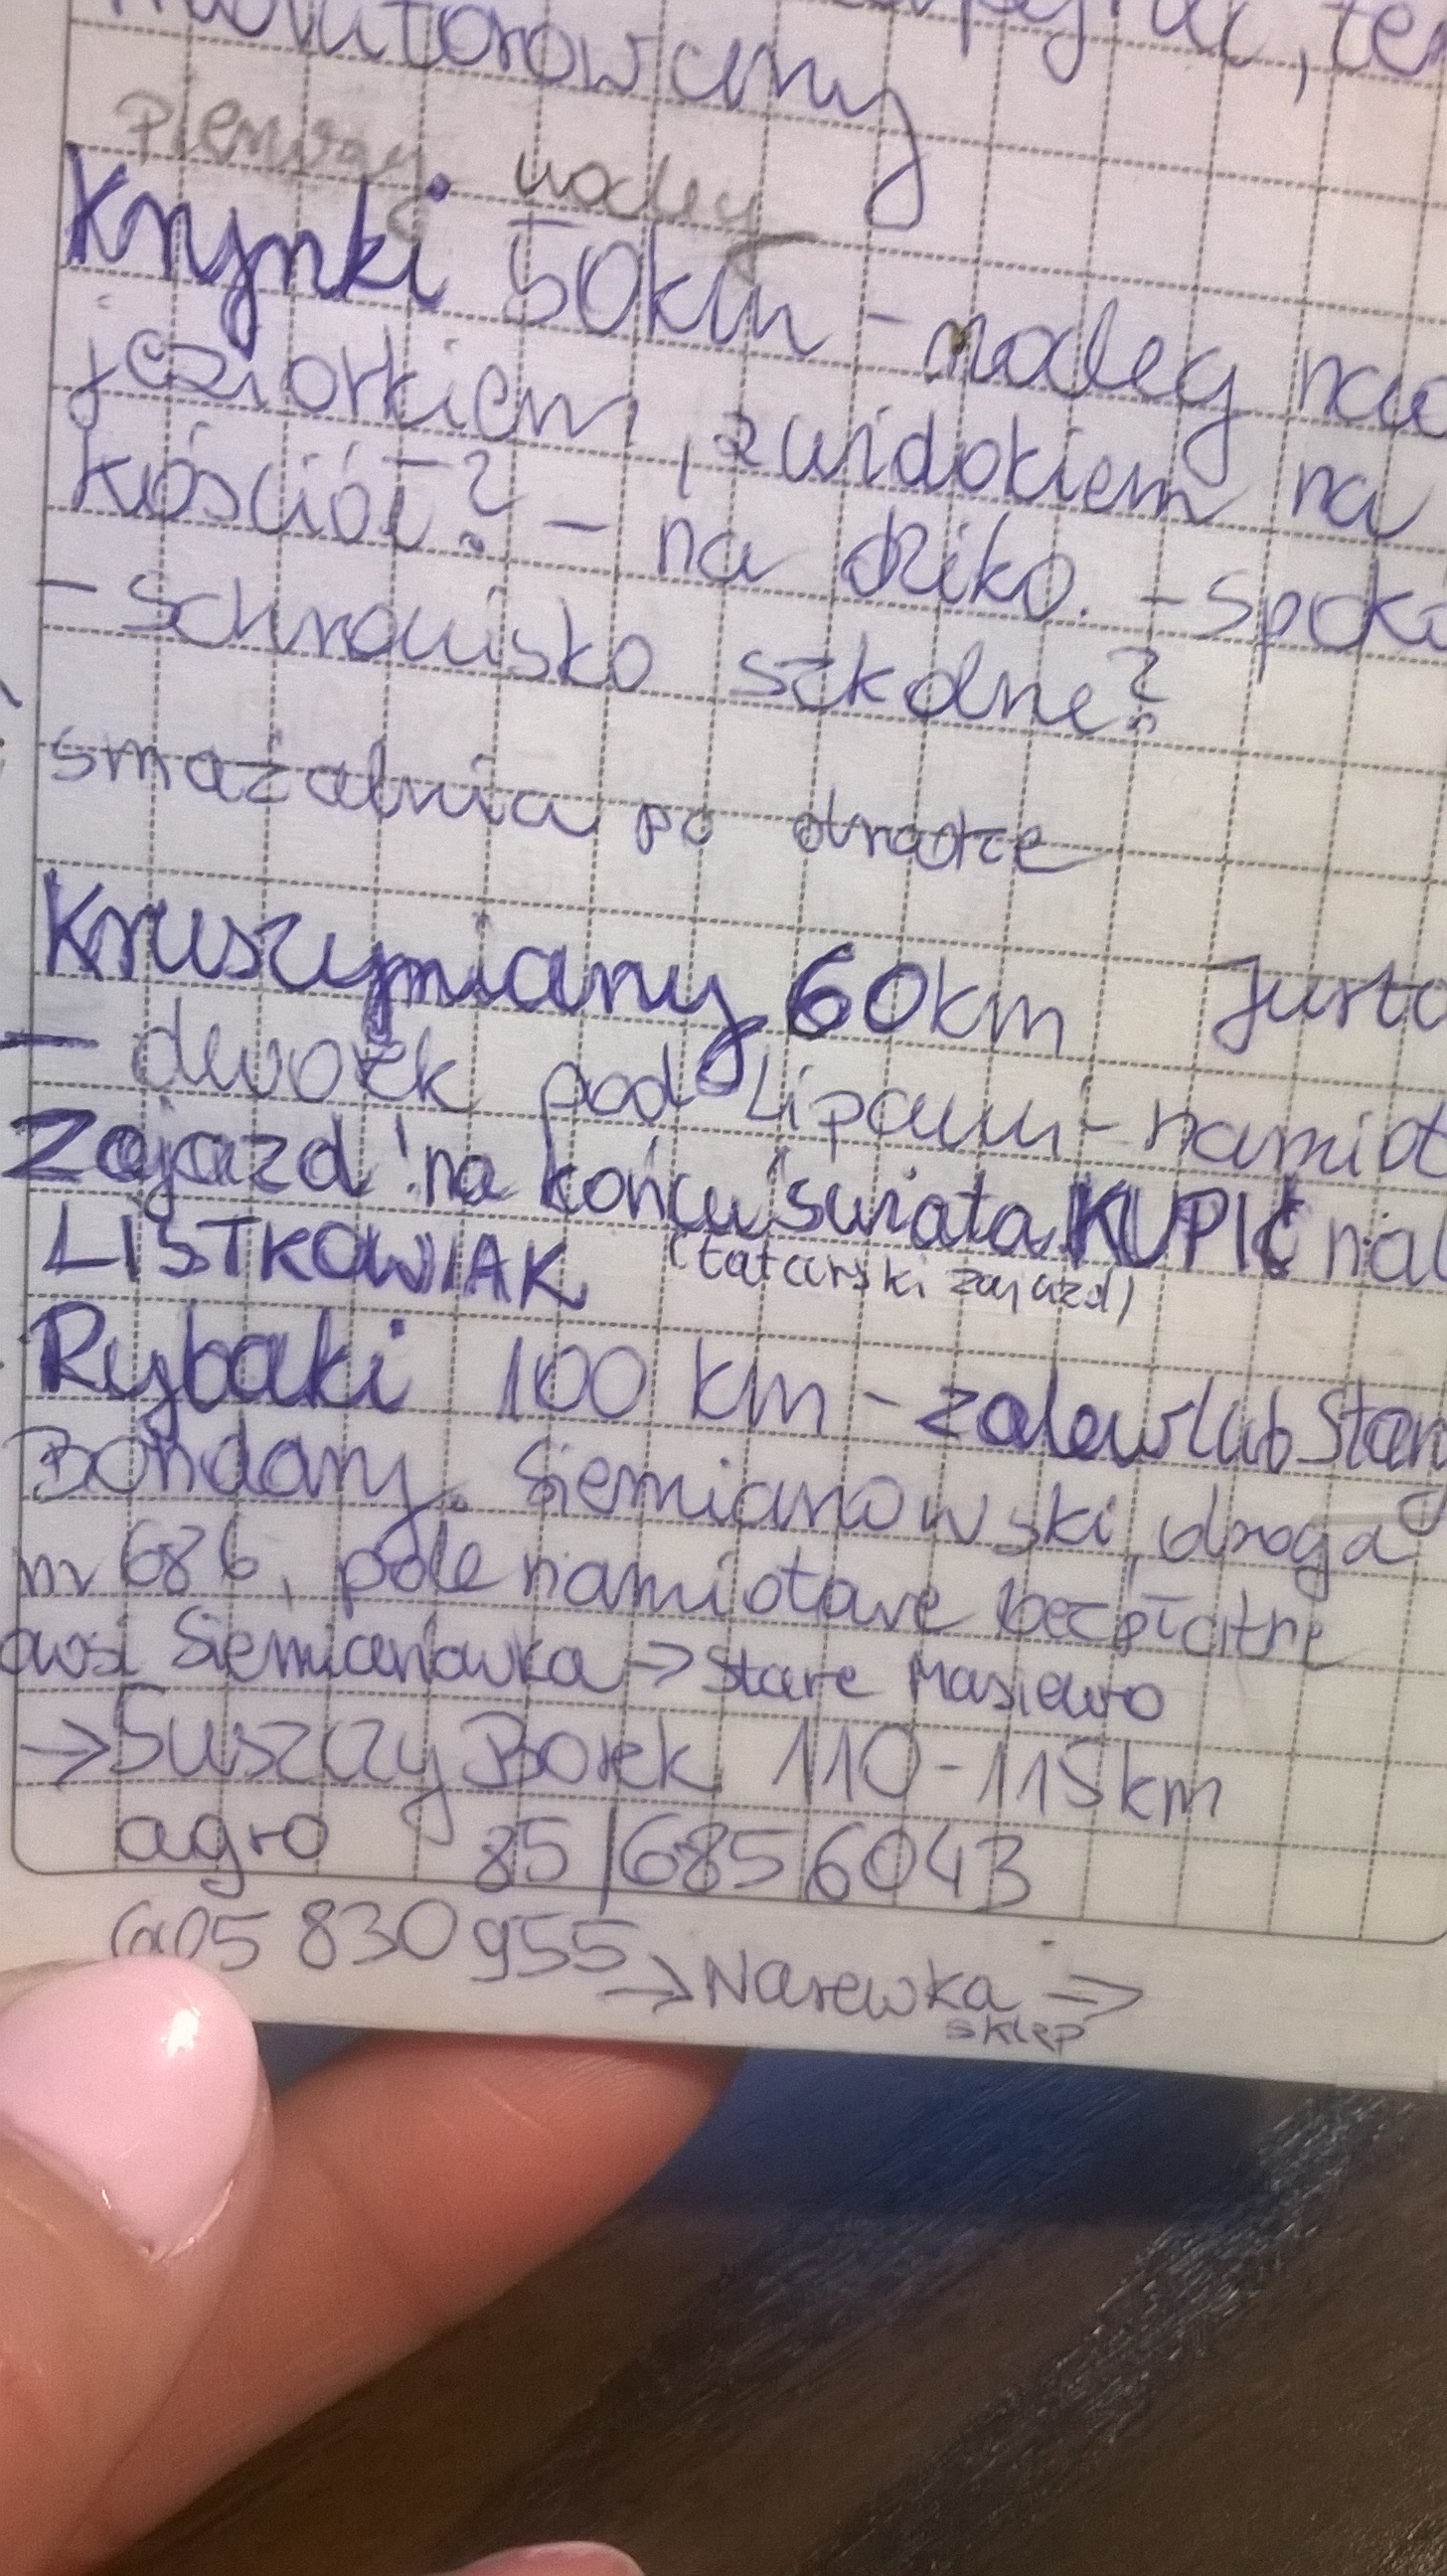 Pierwszy nocleg
Krynki 50km - nocleg nad
jeziorkiem, z widokiem na
kościół? - na dziko. -
- Schronisko szkolne?
smażalnia po drodze
Kruszyniany 60km
- dworek pod Lipami -
Zajazd! na końcu świata KUPIĆ
LISTKOWIAK (tatarski zajazd)
Rybaki 100 km - zalew lub
Bondary. Siemianowski, droga
nr 686, pole namiotowe bezpłatne
Siemianówka -> Stare Masiewo
-> Suszczy Borek 110-115km
agro 85/6856043
605 830 955 -> Narewka ->
sklep